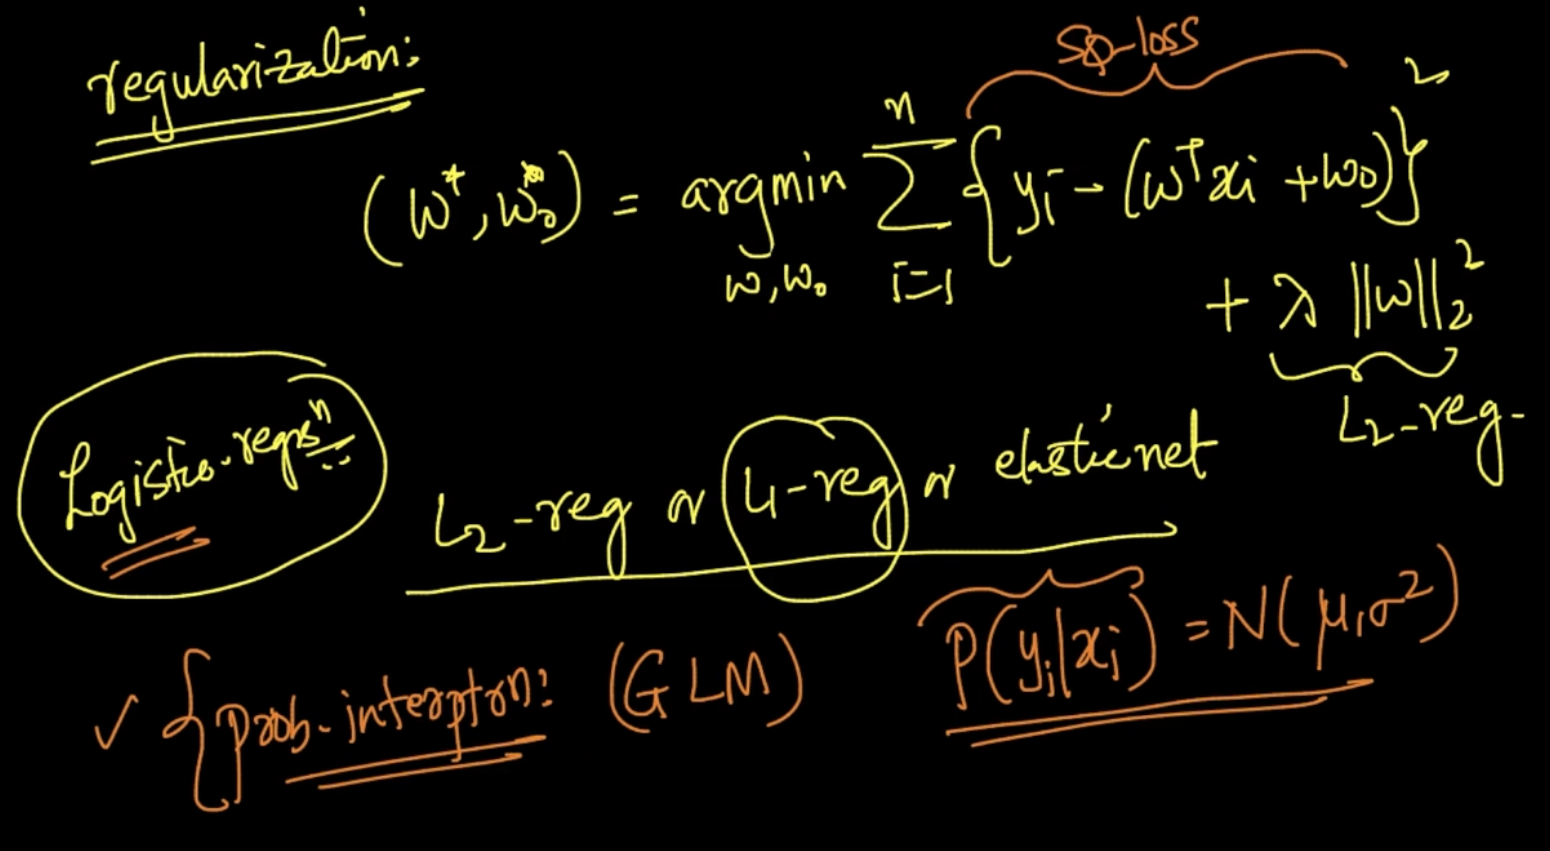 regularization:
sq-loss
(w*, w₀*) = argmin_{w, w₀} Σ_{i=1}^{n} {yᵢ - (wᵀxᵢ + w₀)}²
+ λ ||w||₂²
L₂-reg.
Logistic-regrsⁿ
L₂-reg or L1-reg or elastic net
✓ { prob. interptron: (GLM) P(yᵢ|xᵢ) = N(μ, σ²)